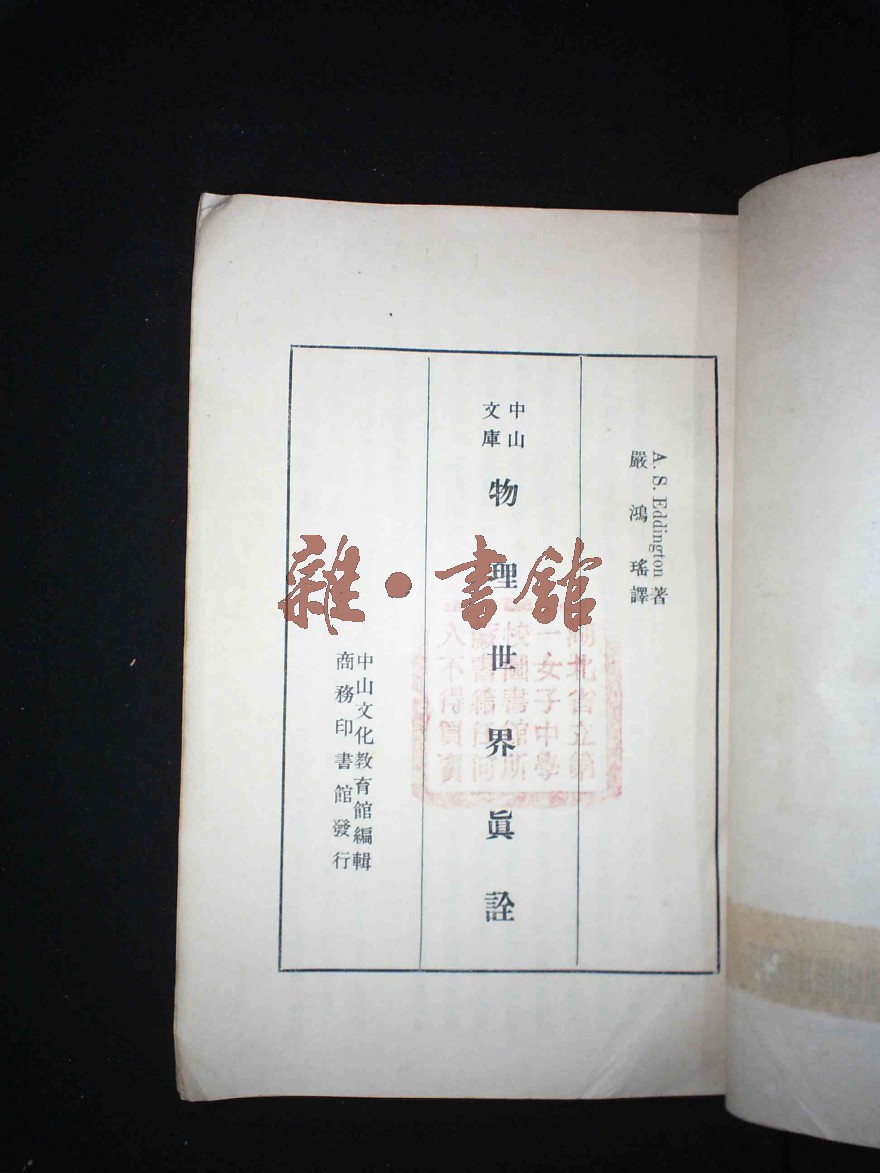 A. S. Eddington 著
嚴鴻瑤譯
中山
文庫
物理世界眞詮
中山文化教育館編輯
商務印書館發行
雜·書館
湖北省立第
一女子中學
校圖書館所
藏書籍任何
人不得買賣